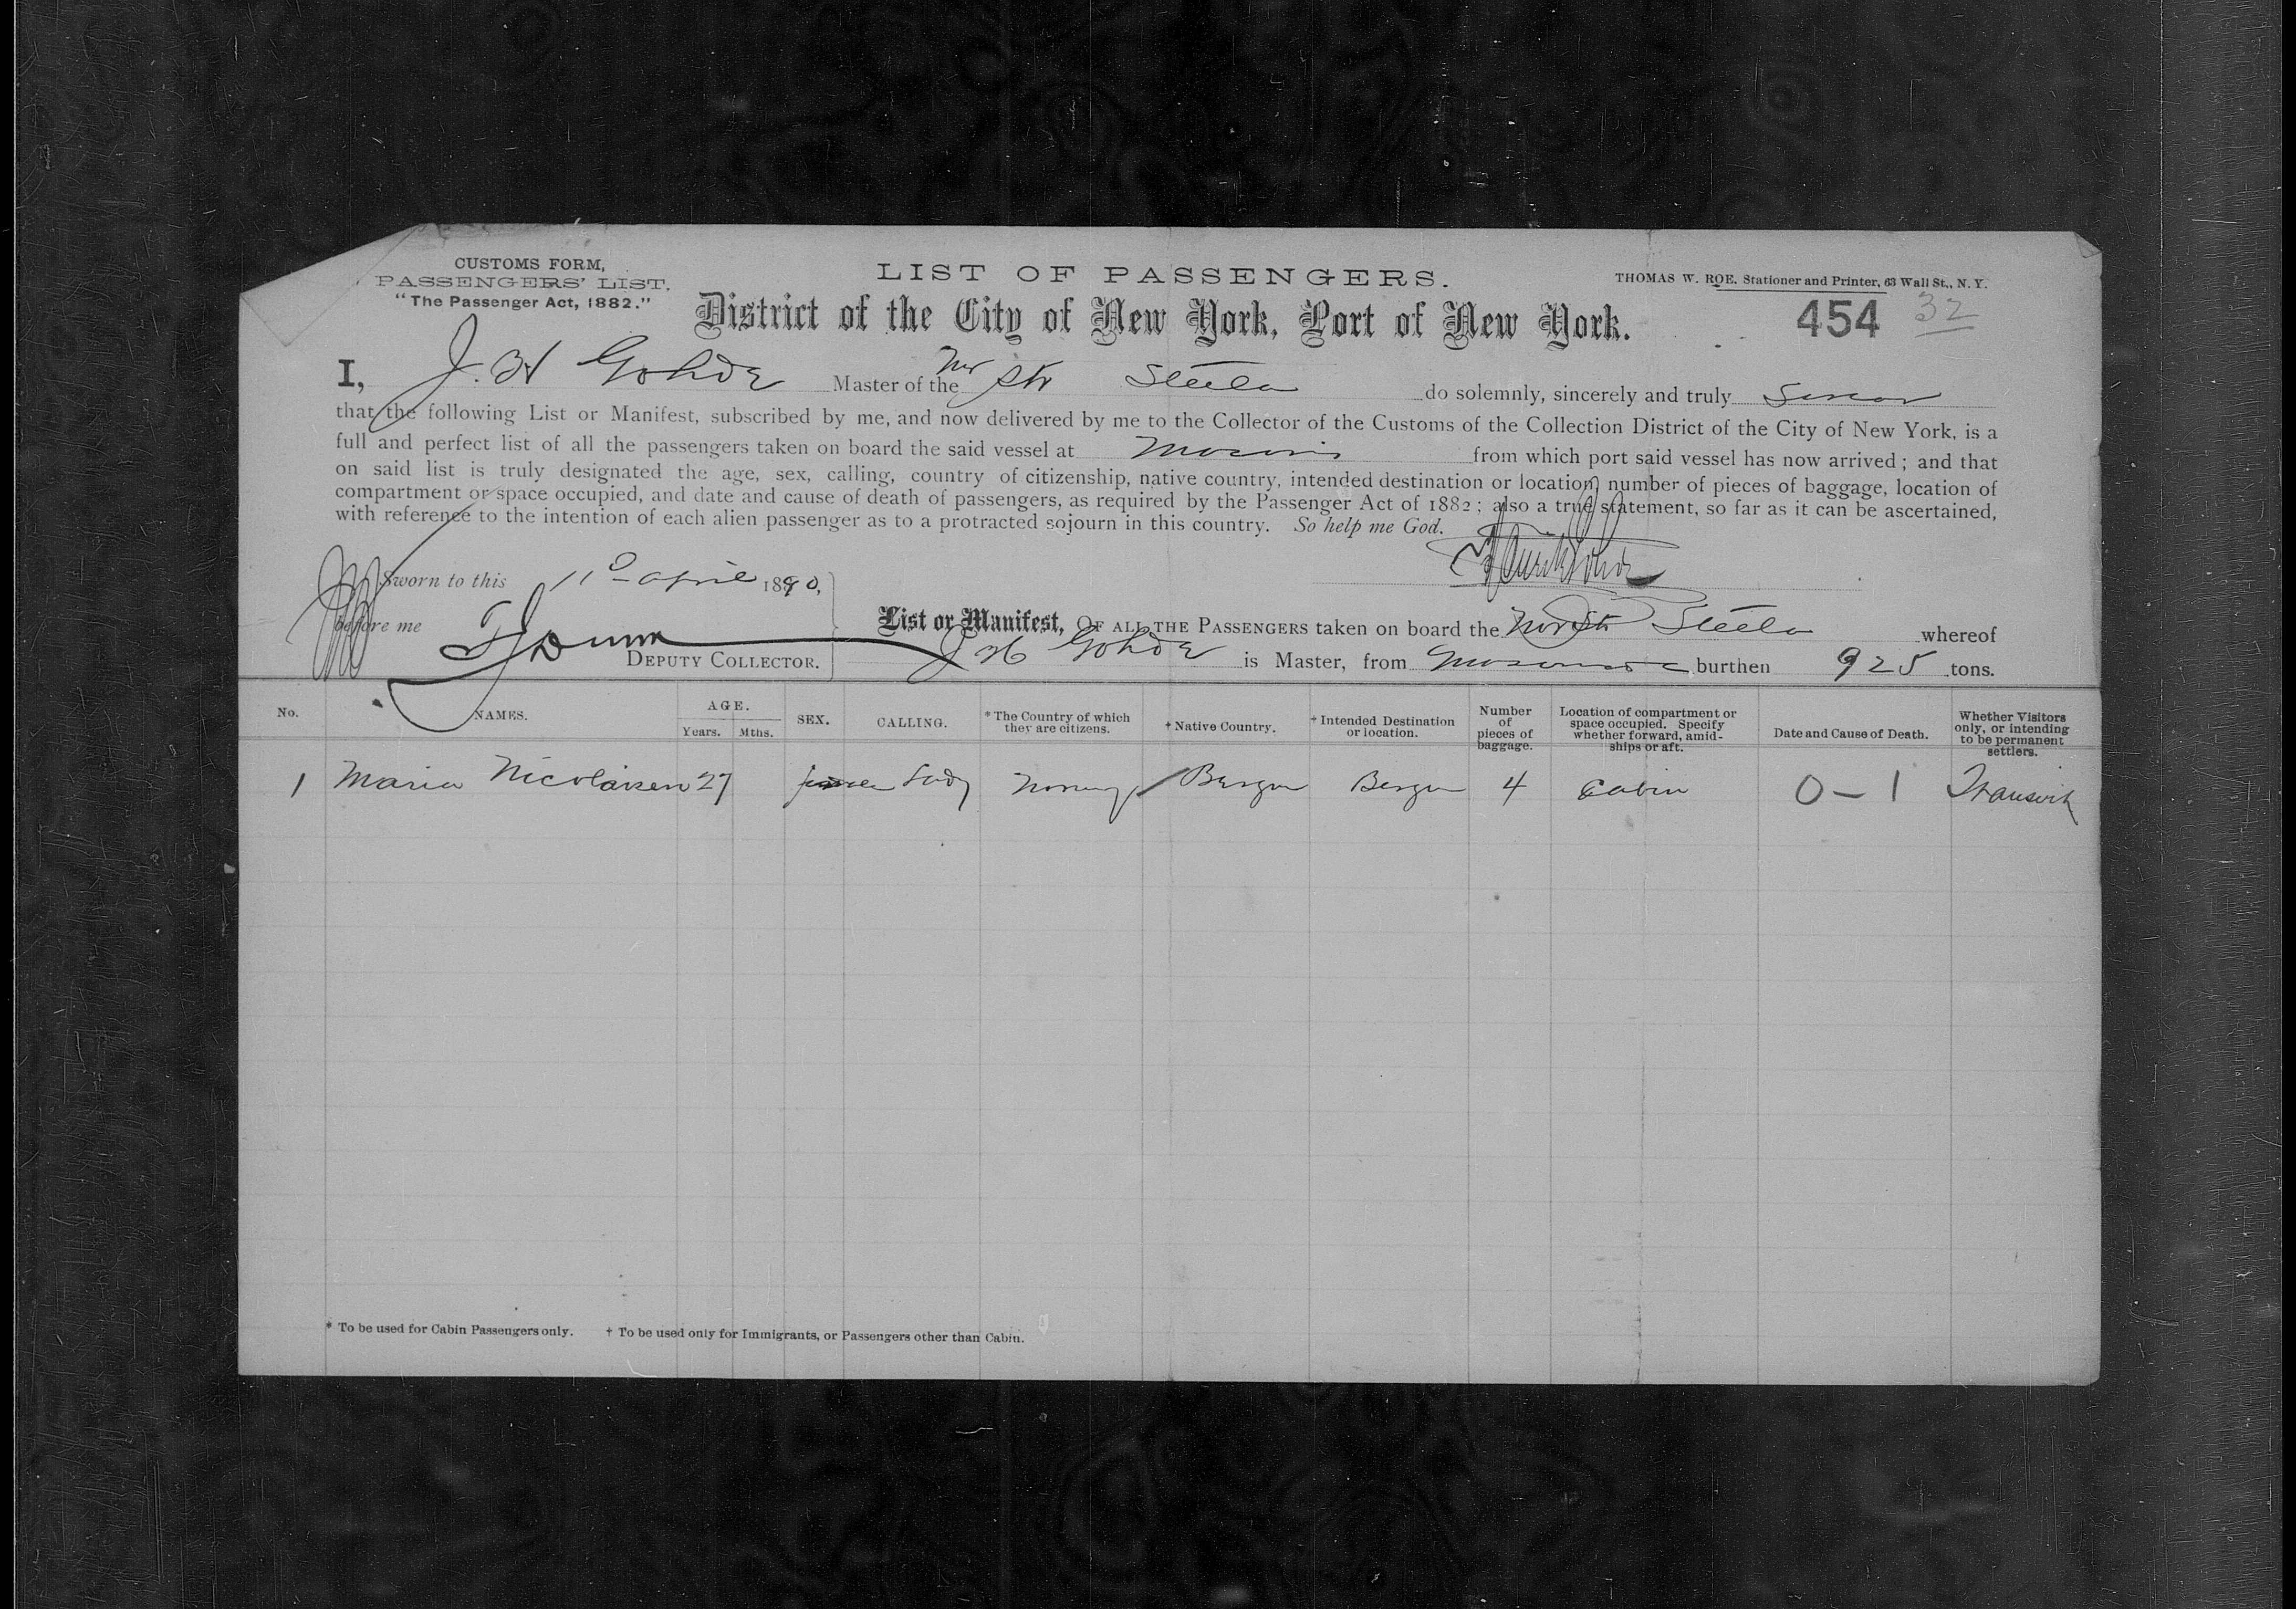 CUSTOMS FORM,
PASSENGERS' LIST.
"The Passenger Act, 1882."
LIST OF PASSENGERS.
THOMAS W. ROE. Stationer and Printer, 63 Wall St., N. Y.
District of the City of New York, Port of New York.
454 32
I, J. H Gohde Master of the Nor Str do solemnly, sincerely and truly
that the following List or Manifest, subscribed by me, and now delivered by me to the Collector of the Customs of the Collection District of the City of New York, is a
full and perfect list of all the passengers taken on board the said vessel at from which port said vessel has now arrived; and that
on said list is truly designated the age, sex, calling, country of citizenship, native country, intended destination or location, number of pieces of baggage, location of
compartment or space occupied, and date and cause of death of passengers, as required by the Passenger Act of 1882; also a true statement, so far as it can be ascertained,
with reference to the intention of each alien passenger as to a protracted sojourn in this country. So help me God.
Sworn to this 11 april 1890,
before me
DEPUTY COLLECTOR.
List or Manifest, OF ALL THE PASSENGERS taken on board the Nor Str whereof
J H Gohde is Master, from burthen 925 tons.
No. NAMES. AGE. Years. Mths. SEX. CALLING. * The Country of which they are citizens. † Native Country. † Intended Destination or location. Number of pieces of baggage. Location of compartment or space occupied. Specify whether forward, amidships or aft. Date and Cause of Death. Whether Visitors only, or intending to be permanent settlers.
1 Maria Nicolaisen 27 Lady Norway Bergen Bergen 4 Cabin 0-1
* To be used for Cabin Passengers only. † To be used only for Immigrants, or Passengers other than Cabin.